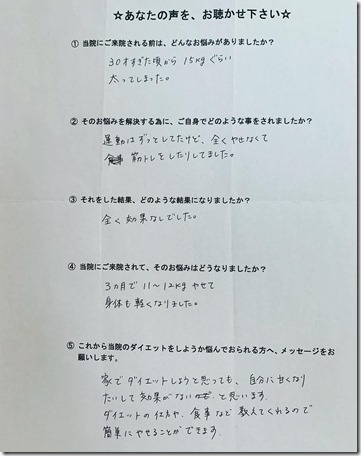 ☆あなたの声を、お聴かせ下さい☆
① 当院にご来院される前は、どんなお悩みがありましたか？
30才すぎた頃から 15kgぐらい
太ってしまった。
② そのお悩みを解決する為に、ご自身でどのような事をされましたか？
運動はずっとしてたけど、全くやせなくて
筋トレをしたりしてました。
③ それをした結果、どのような結果になりましたか？
全く効果なしでした。
④ 当院にご来院されて、そのお悩みはどうなりましたか？
3ヵ月で 11〜12kg やせて
身体も軽くなりました。
⑤ これから当院のダイエットをしようか悩んでおられる方へ、メッセージをお
願いします。
家でダイエットしようと思っても、自分に甘くなり
たいして効果がない と思います。
ダイエットの仕方や、食事など教えてくれるので
簡単にやせることができます。